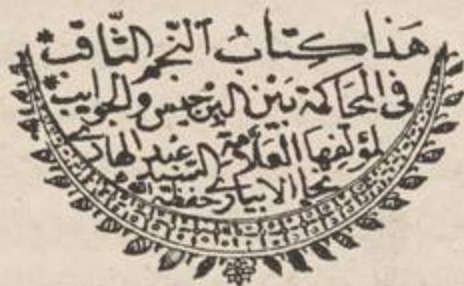 هَذا كِتابُ ٱلنّجم الثّاقب
فى المحاكمة بَيْن البرجيس والجوايب
لمؤلفها العلّامة السّيد عبد الهادى
نجا الابيارى حفظه الله